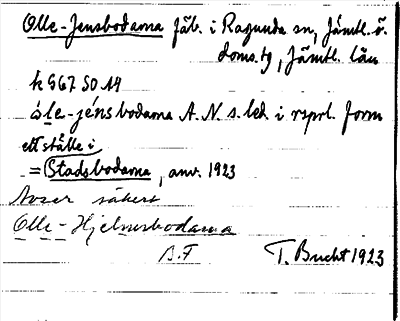 Olle-Jensbodarna fäb. i Ragunda sn, Jämtl. ö.
doms. tg, Jämtl. län
k 967 SO 14
òle-jénsbodarna A. N. s. led i rsprl. form
ett ställe i
= Stadsbodarna, anv. 1923
Avser säkert
Olle-Hjelmsbodarna
B.F
T. Bucht 1923